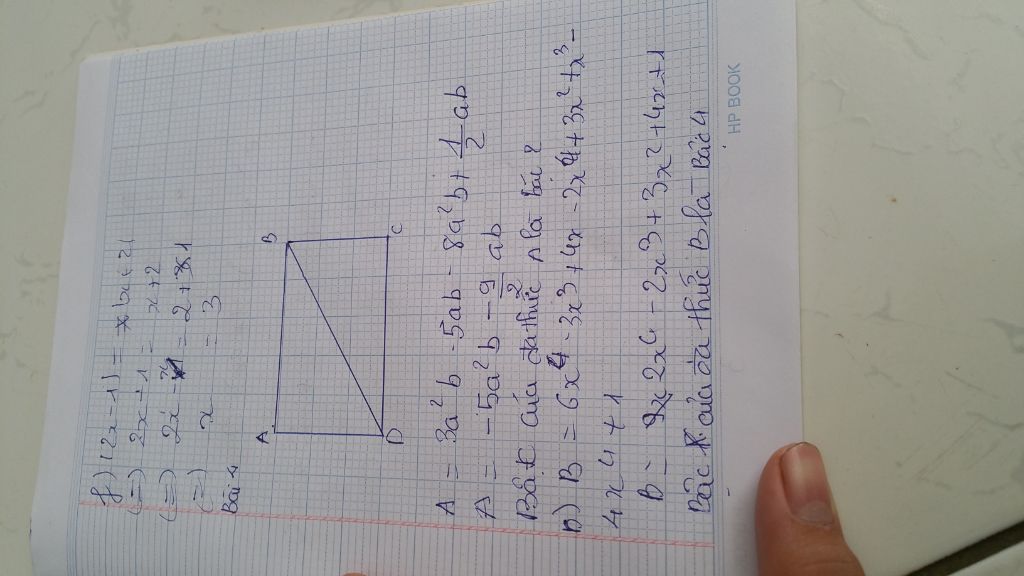 f) (2x-1) = x
(=) 2x - 1 = x+2
(=) 2x - x = 2 + 1
(=) x = 3
Bài 4
A B
D C
A = 3a²b - 5ab - 8a²b + 1/2 ab
A = -5a²b - 9/2 ab
Bậc của đa thức A là bậc
b) B = 6x⁴ - 3x³ + 4x - 2x⁴ + 3x² + x³ -
4x⁴ + 1
B = 2x⁴ - 2x³ + 3x² + 4x + 1
Bậc của đa thức B là Bậc 4
HP BOOK